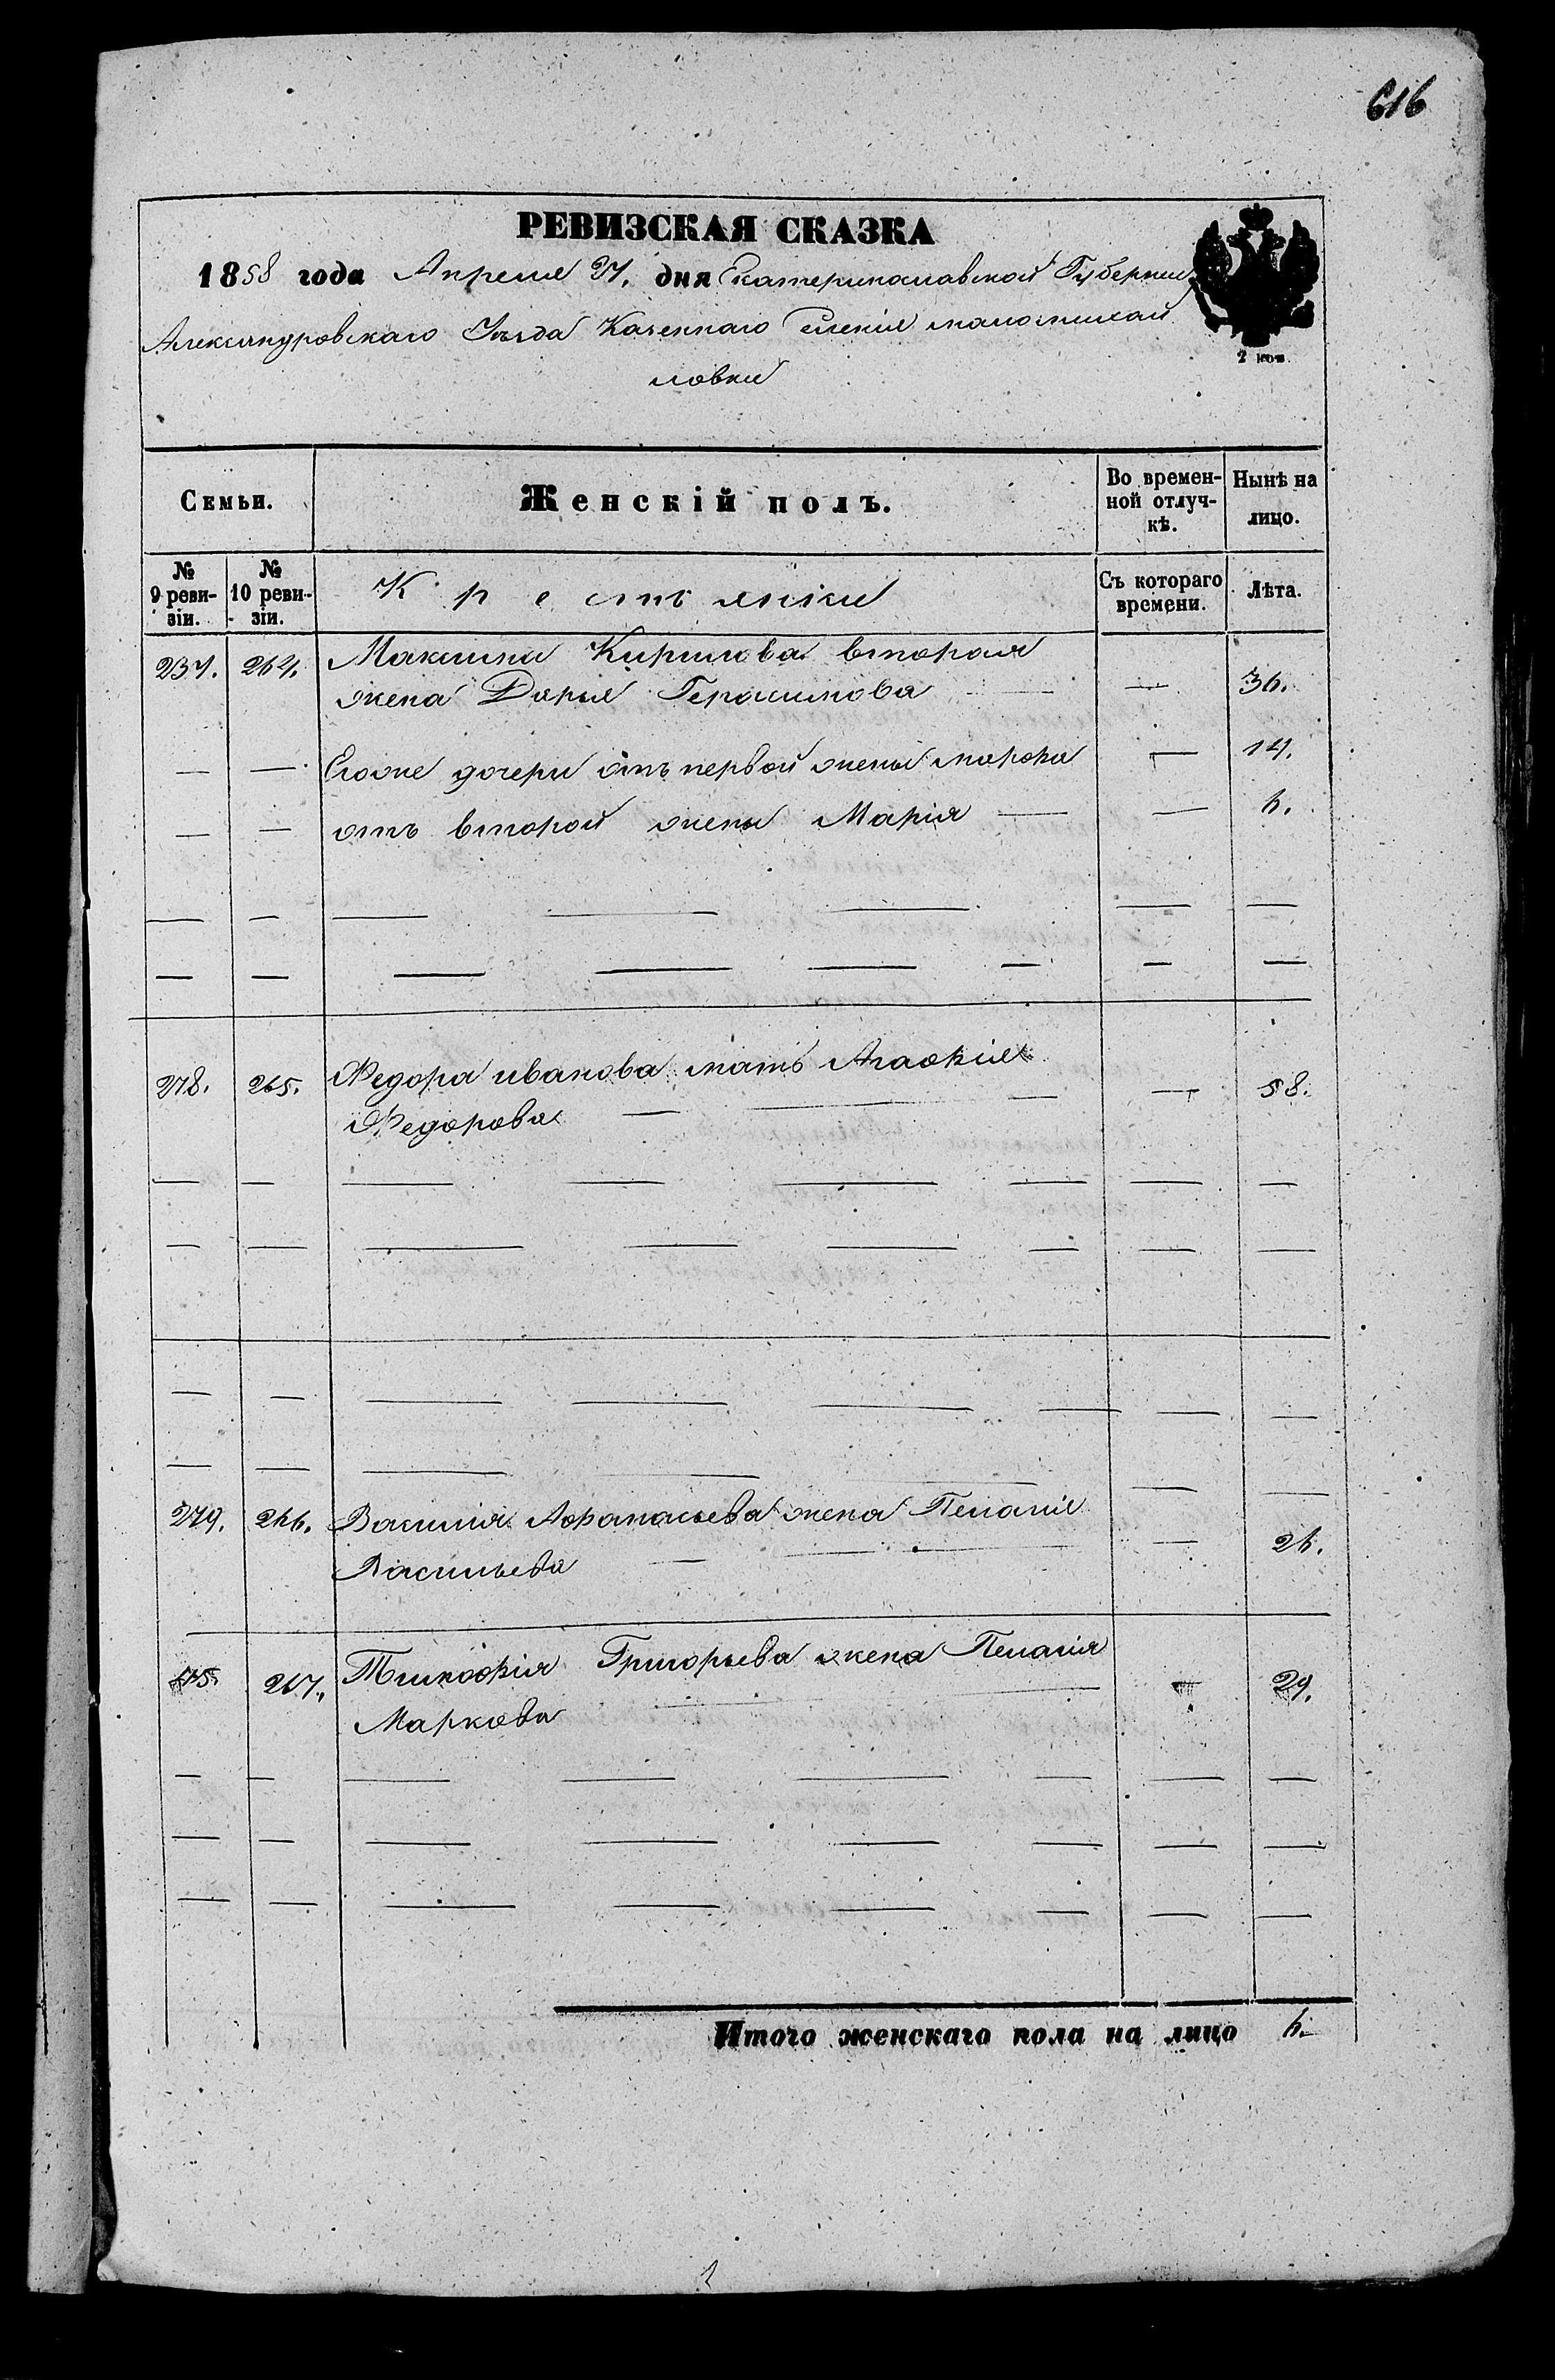 616
РЕВИЗСКАЯ СКАЗКА
1858 года Апреля 21. дня Екатеринославской Губернии
Александровскаго Уезда Казеннаго селенія маломихай
ловки
2 коп.
Семьи. Женскій полъ. Во времен-ной отлуч-кѣ. Нынѣ на лицо.
№ 9 реви-зіи. № 10 реви-зіи. Крестьянки Съ котораго времени. Лѣта.
264. Максима Кирилова вторая
жена Дарья Герасимова — — 36.
— — Егоже дочери отъ первой жены — 14.
— — отъ второй жены Марія — — 6.
— — — — — — —
— — — — — — — —
278. 265. Федора иванова мать Агафія — 58.
Федорова — — —
— — — — — — — —
— — — — — — — —
— — — — — — — —
— — — — — — —
279. 266. Василія Афанасьева жена Пелагія — 26.
Васильева — — —
267. Тимофія Григорьева жена Пелагія — 29.
Маркова — —
— — — — — — — —
— — — — — — — —
— — — — — — — —
Итого женскаго пола на лицо 6.